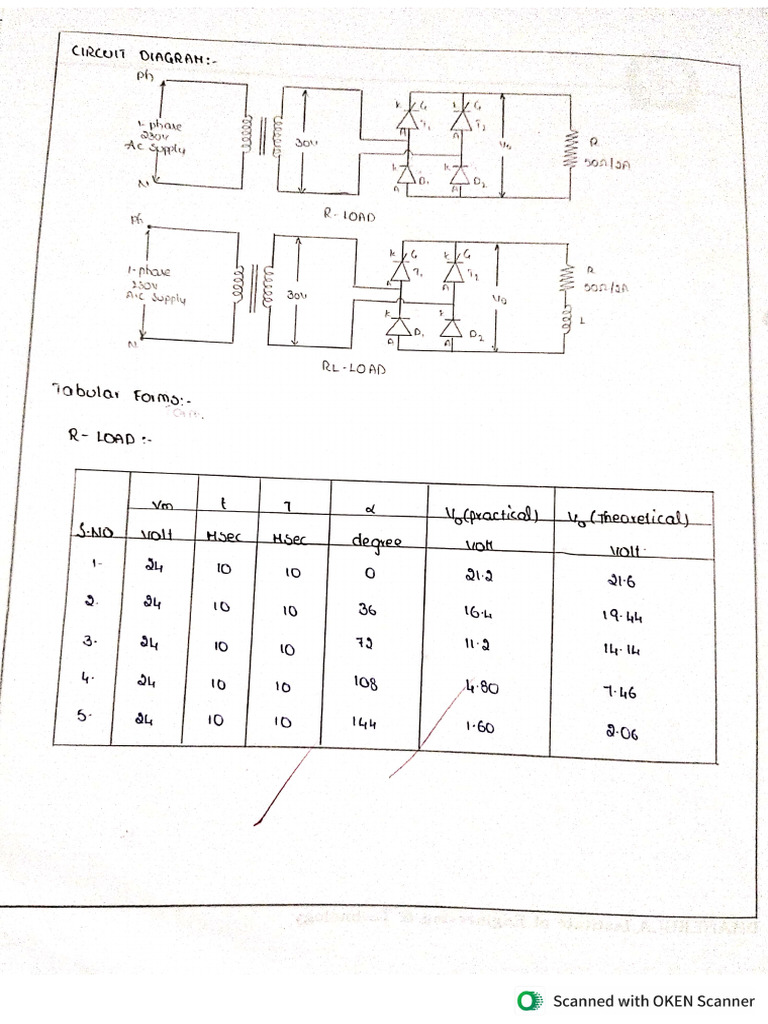 CIRCUIT DIAGRAM:-
Ph
1-phase
230V
Ac Supply
N
30V
K G K G
T1 T2
A A
K K
D1 D2
A A
V0
R
50Ω/2A
R-LOAD
Ph
1-phase
230V
A.C Supply
N
30V
K G K G
T1 T2
A A
K K
D1 D2
A A
V0
R
50Ω/2A
L
RL-LOAD
Tabular Forms:-
R-LOAD :-
S.NO Vm Volt t Msec T Msec α degree V0(practical) volt V0(Theoretical) volt.
1. 24 10 10 0 21.2 21.6
2. 24 10 10 36 16.4 19.44
3. 24 10 10 72 11.2 14.14
4. 24 10 10 108 4.80 7.46
5. 24 10 10 144 1.60 2.06
Scanned with OKEN Scanner